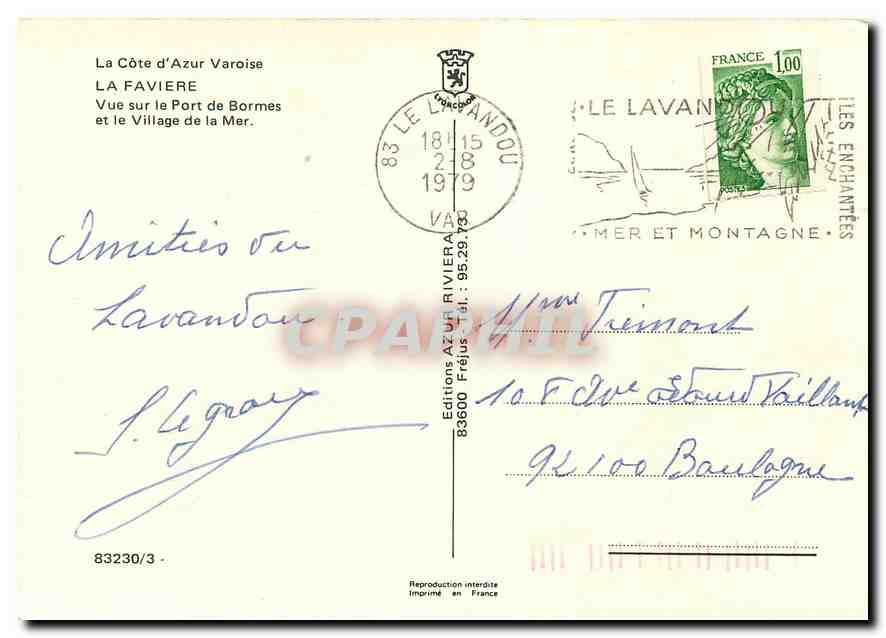 La Côte d'Azur Varoise
LA FAVIERE
Vue sur le Port de Bormes
et le Village de la Mer.
LYONCOLOR
83 LE LAVANDOU
18H15
2-8
1979
VAR
FRANCE 1,00
POSTES
LE LAVANDOU
ILES ENCHANTÉES
MER ET MONTAGNE
Amitiés du
Lavandou
S. Legroux
Editions AZUR RIVIERA
83600 Fréjus - Tél. : 95.29.73
CPAPHIL
Mme Trémont
10 F Ave Edouard Vaillant
92100 Boulogne
83230/3 -
Reproduction interdite
Imprimé en France